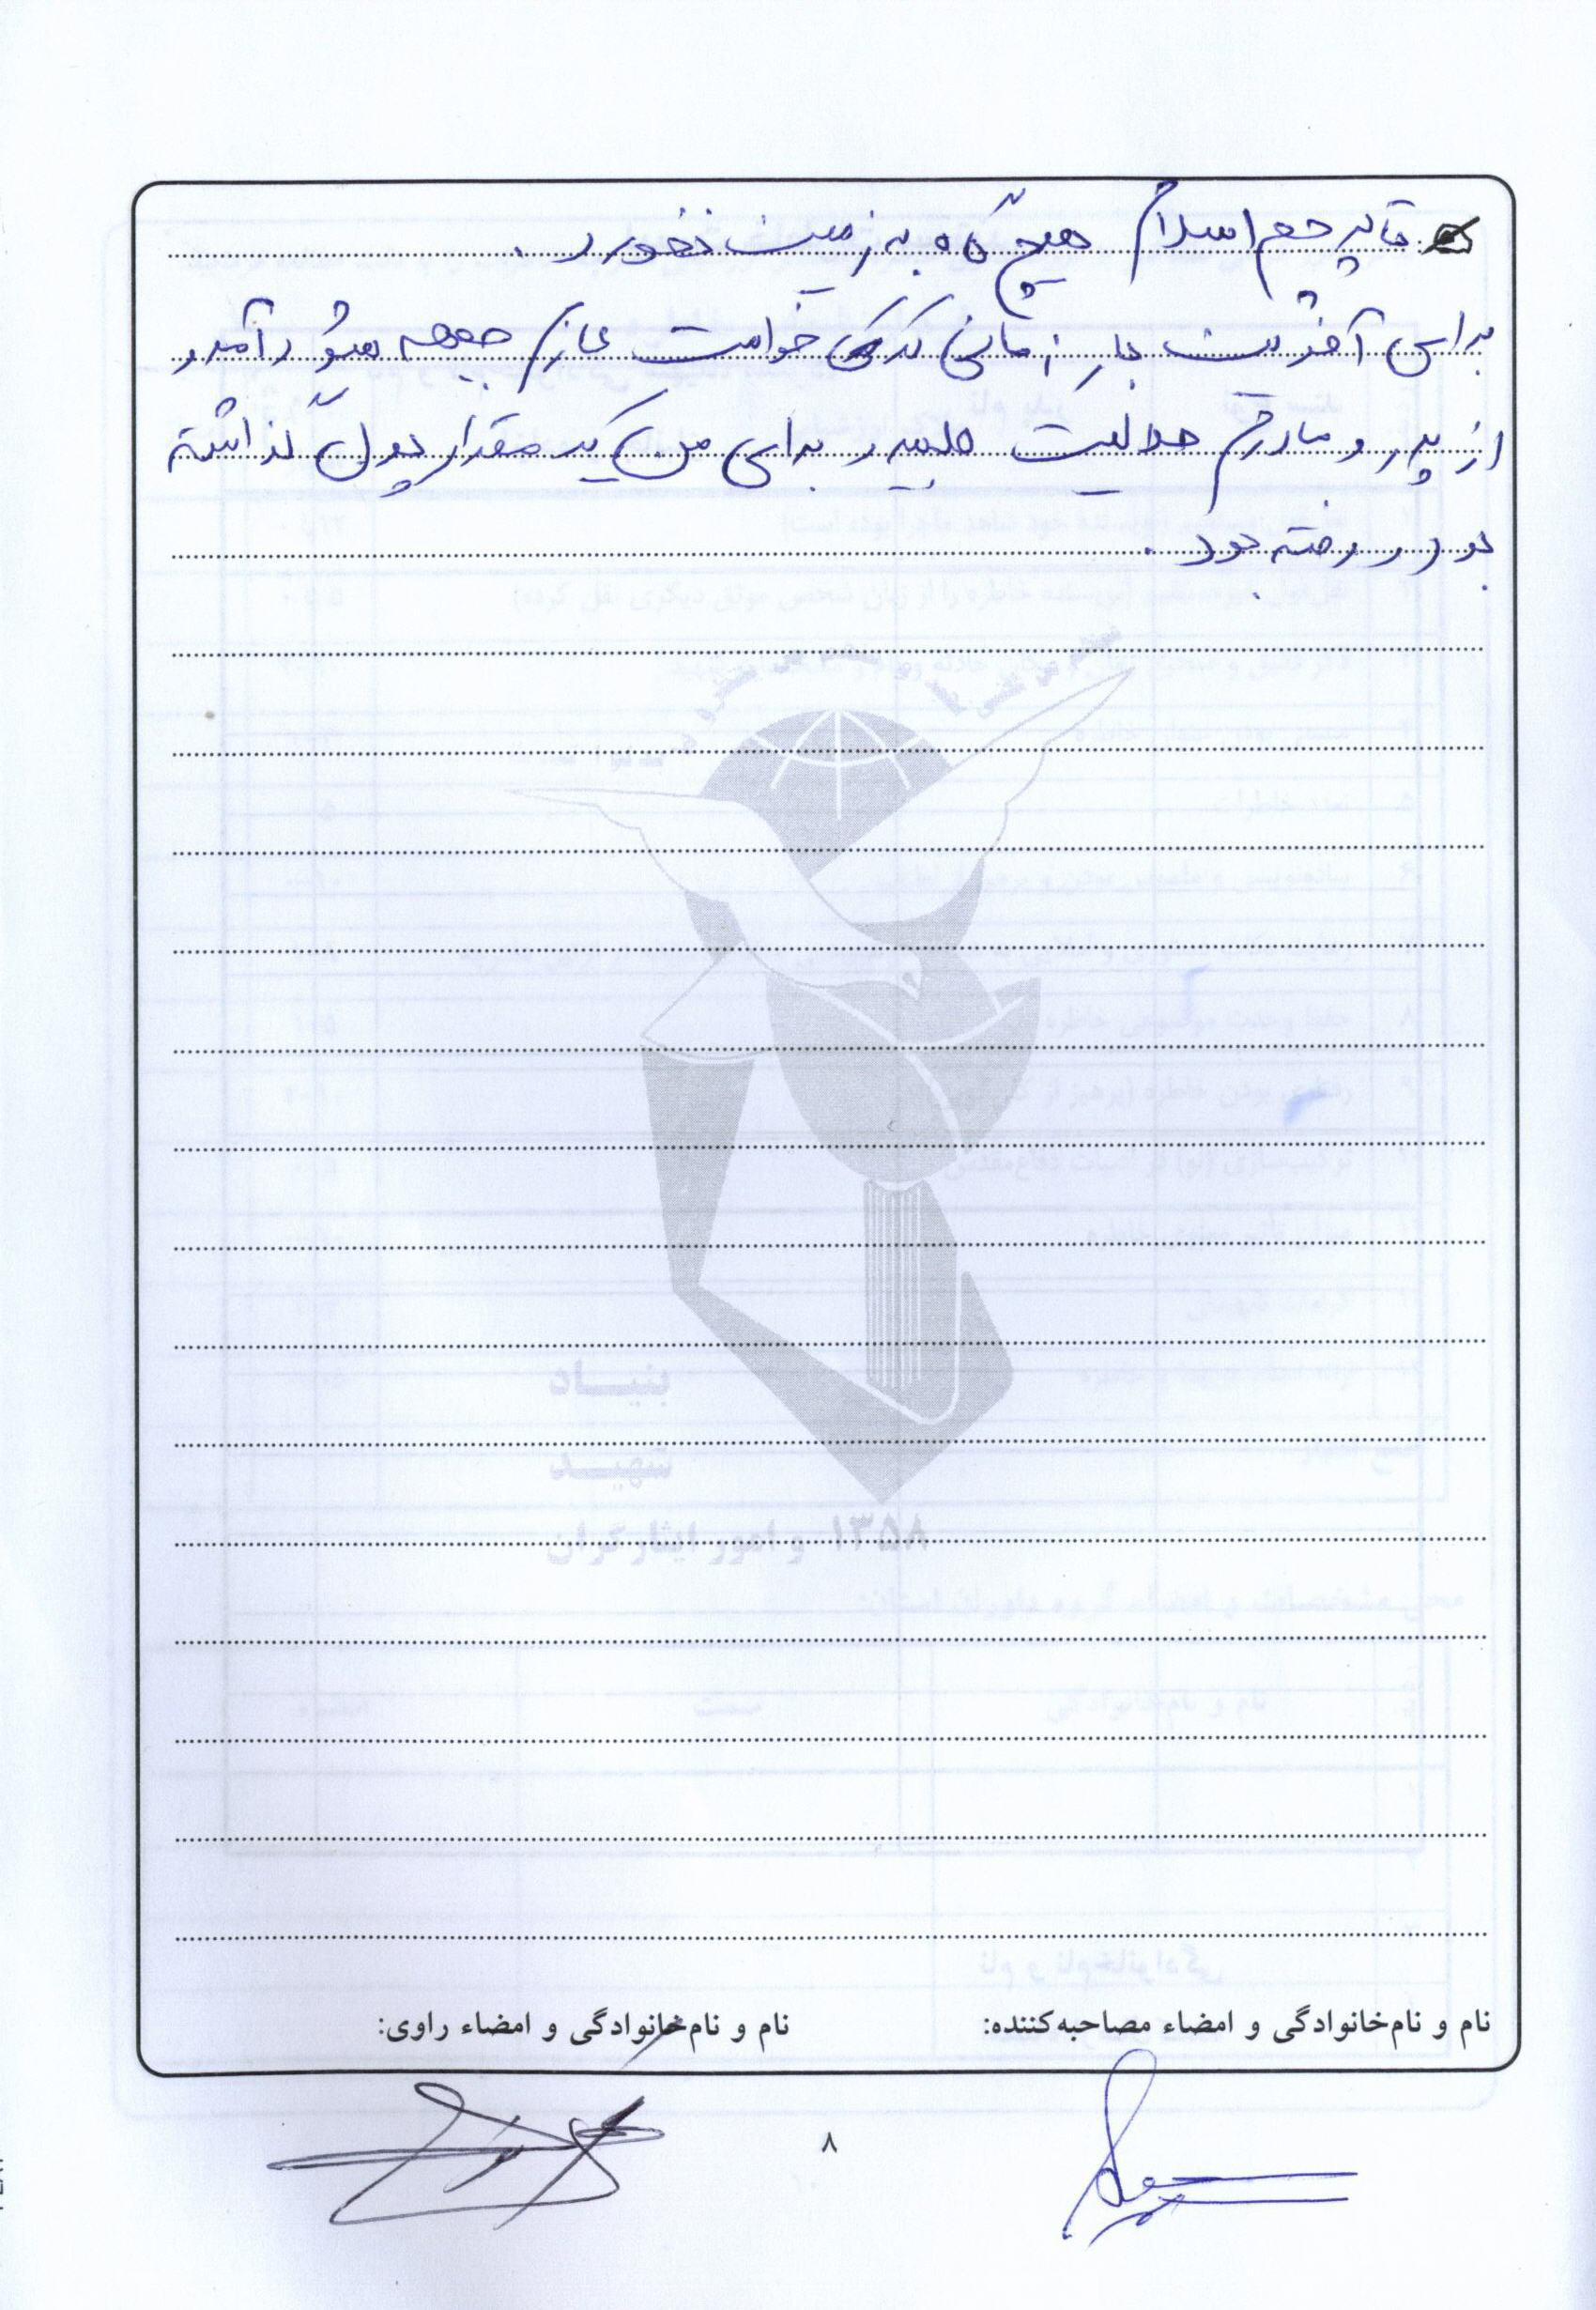 تا پرچم اسلام هیچ گاه به زمین نخورد .
برای آخرین بار زمانی که می خواست عازم جبهه شود آمد و
از پدر و مادرم حلالیت طلبید و برای من یک مقدار پول گذاشته
بود و رفته بود .
بنیاد
شهید
و امور ایثارگران ۱۳۵۸
نام و نام‌خانوادگی و امضاء مصاحبه‌کننده: نام و نام‌خانوادگی و امضاء راوی:
۸